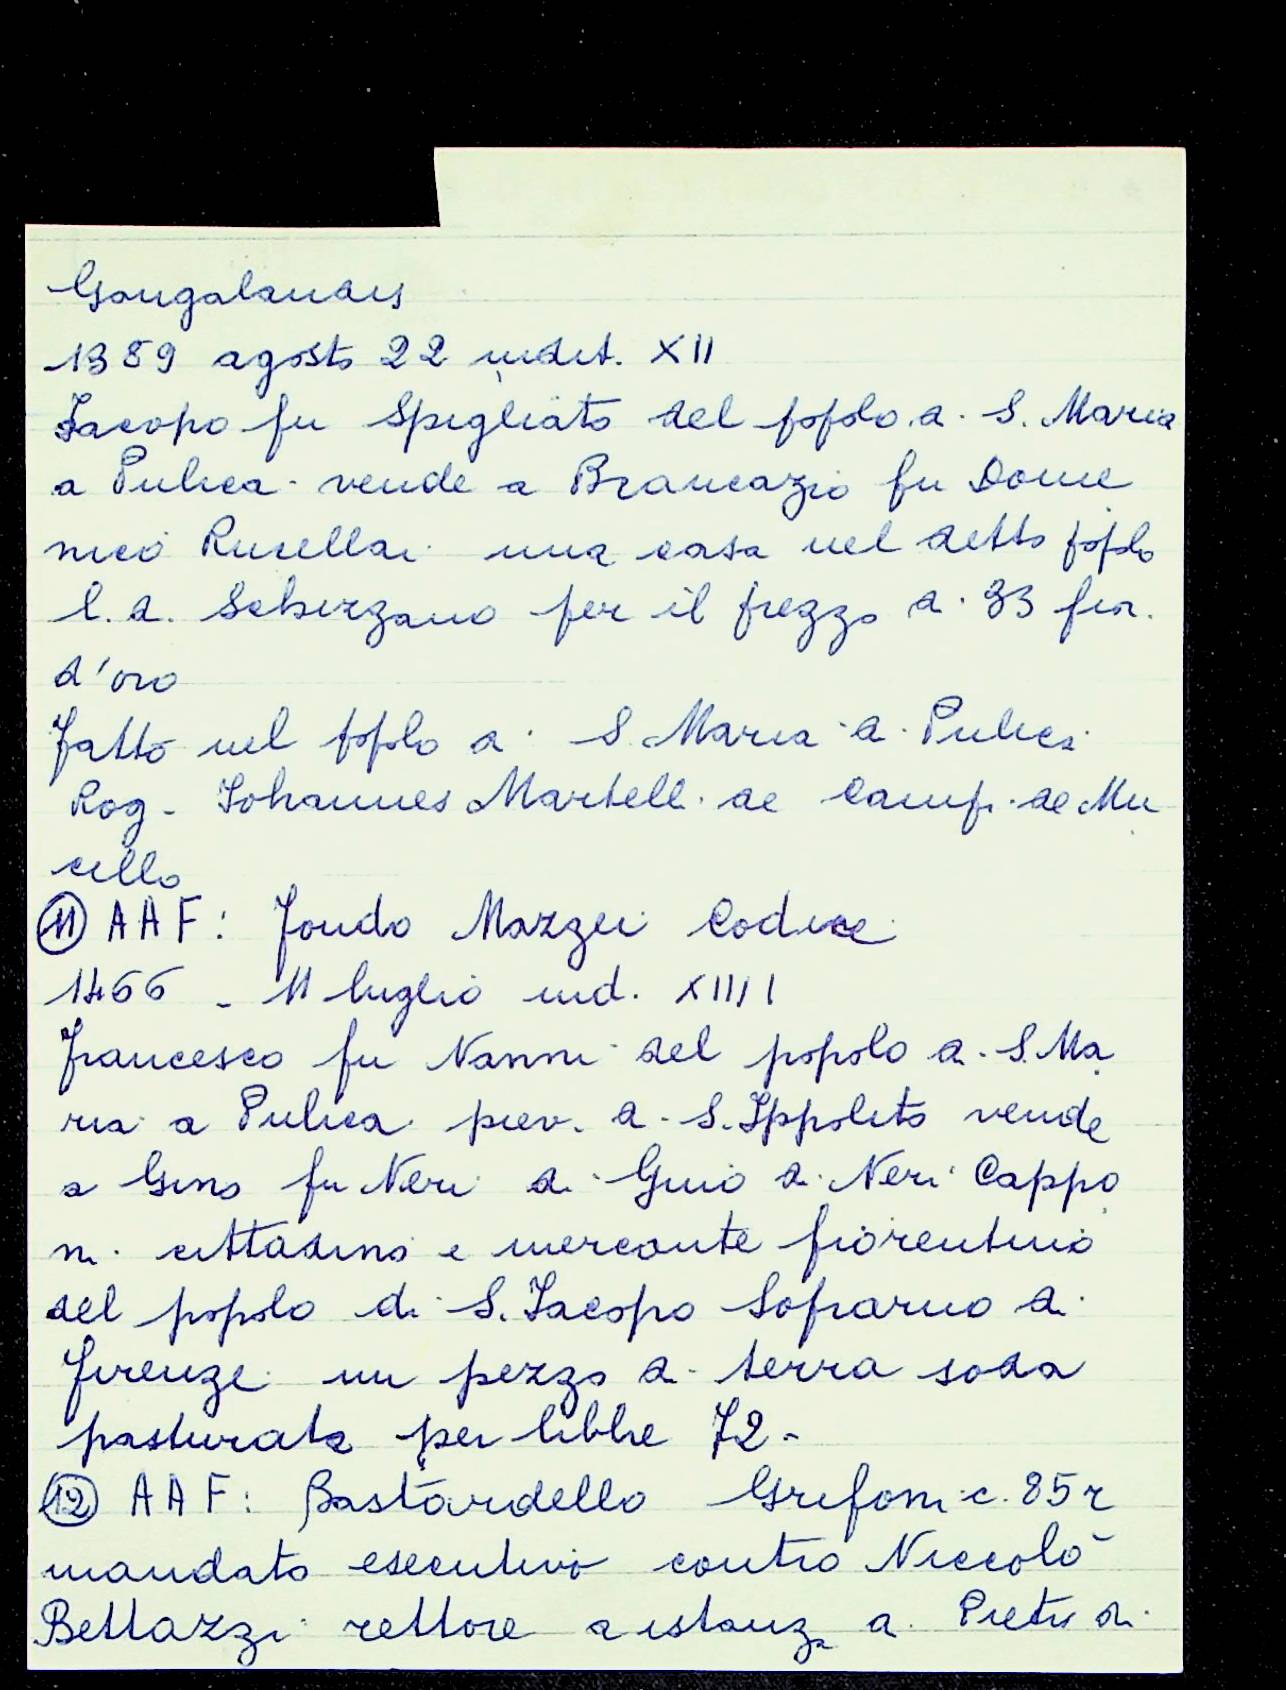 Gangalandis
1389 agosto 22 indit. XII
Iacopo fu Spigliato del popolo di S. Maria
a Pulica vende a Brancazio fu Dome
nico Rucellai una casa nel detto popolo
l. d. Scherzano per il prezzo di 33 fior.
d'oro
Fatto nel popolo di S. Maria a Pulica
Rog. Iohannes Martelli de Campi de Mu
cello
(11) AAF: Fondo Mazzei Codice
1466 - 11 luglio ind. XIIII
Francesco fu Nanni del popolo di S. Ma
ria a Pulica piev. di S. Ippolito vende
a Gino fu Neri di Gino di Neri Cappo
ni cittadino e mercante fiorentino
del popolo di S. Iacopo Soprarno di
Firenze un pezzo di terra soda
pasturata per libbre 72.
(12) AAF: Bastardello Grifoni c. 85r
mandato esecutivo contro Niccolò
Bettazzi rettore a istanza di Pietro di